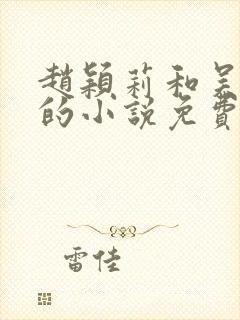 趙穎莉和吴
的小説免費
雷佳